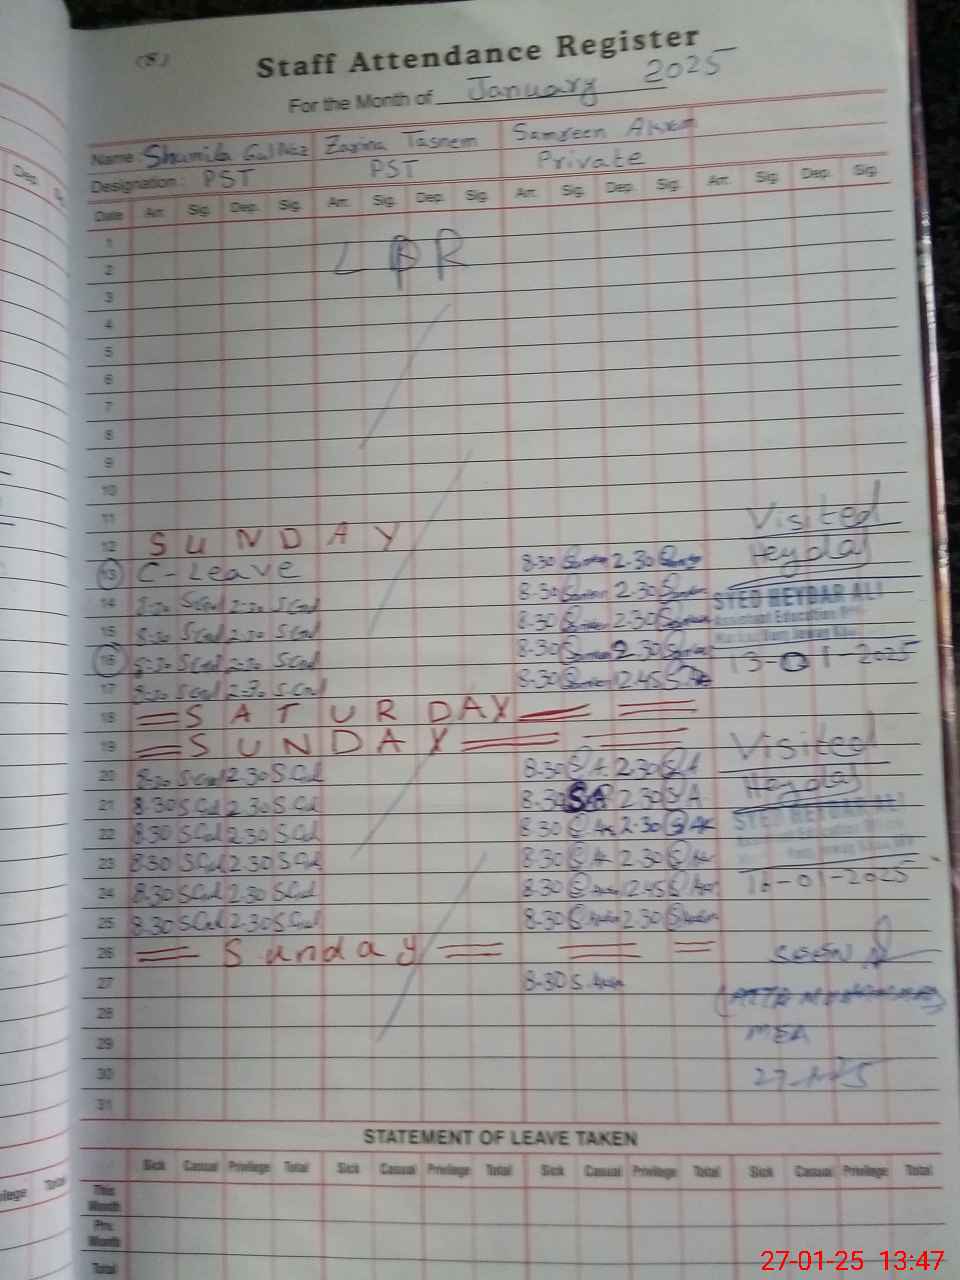 (8)
Staff Attendance Register
For the Month of January 2025
Name: Shumila Gul Naz Zarina Tasnem Samreen Akram
Designation: PST PST Private
Date Arr. Sig. Dep. Sig. Arr. Sig. Dep. Sig. Arr. Sig. Dep. Sig. Arr. Sig. Dep. Sig.
1
2 LPR
3
4
5
6
7
8
9
10
11
12 SUNDAY Visited
13 C-Leave 8.30 2.30 Heydar
14 8.30 SGul 2.30 SGul 8.30 2.30 SYED HEYDAR ALI
15 8.30 SGul 2.30 SGul 8.30 2.30 Assistant Education
16 8.30 SGul 2.30 SGul 8.30 2.30
17 8.30 SGul 2.30 SGul 8.30 2.45 13-01-2025
18 SATURDAY
19 SUNDAY Visited
20 8.30 SGul 2.30 S.Gul 8.30 S A 2.30 S A Heydar
21 8.30 S Gul 2.30 S Gul 8.30 SA 2.30 S A SYED HEYDAR ALI
22 8.30 S Gul 2.30 S Gul 8.30 2.30
23 8.30 S Gul 2.30 S Gul 8.30 2.30
24 8.30 SGul 2.30 SGul 8.30 2.45 16-01-2025
25 8.30 SGul 2.30 SGul 8.30 2.30
26 Sunday SEEN
27 8-30
28 MEA
29
30 27-1-25
31
STATEMENT OF LEAVE TAKEN
Sick Casual Privilege Total Sick Casual Privilege Total Sick Casual Privilege Total Sick Casual Privilege Total
This Month
Pre. Month
Total
27-01-25 13:47